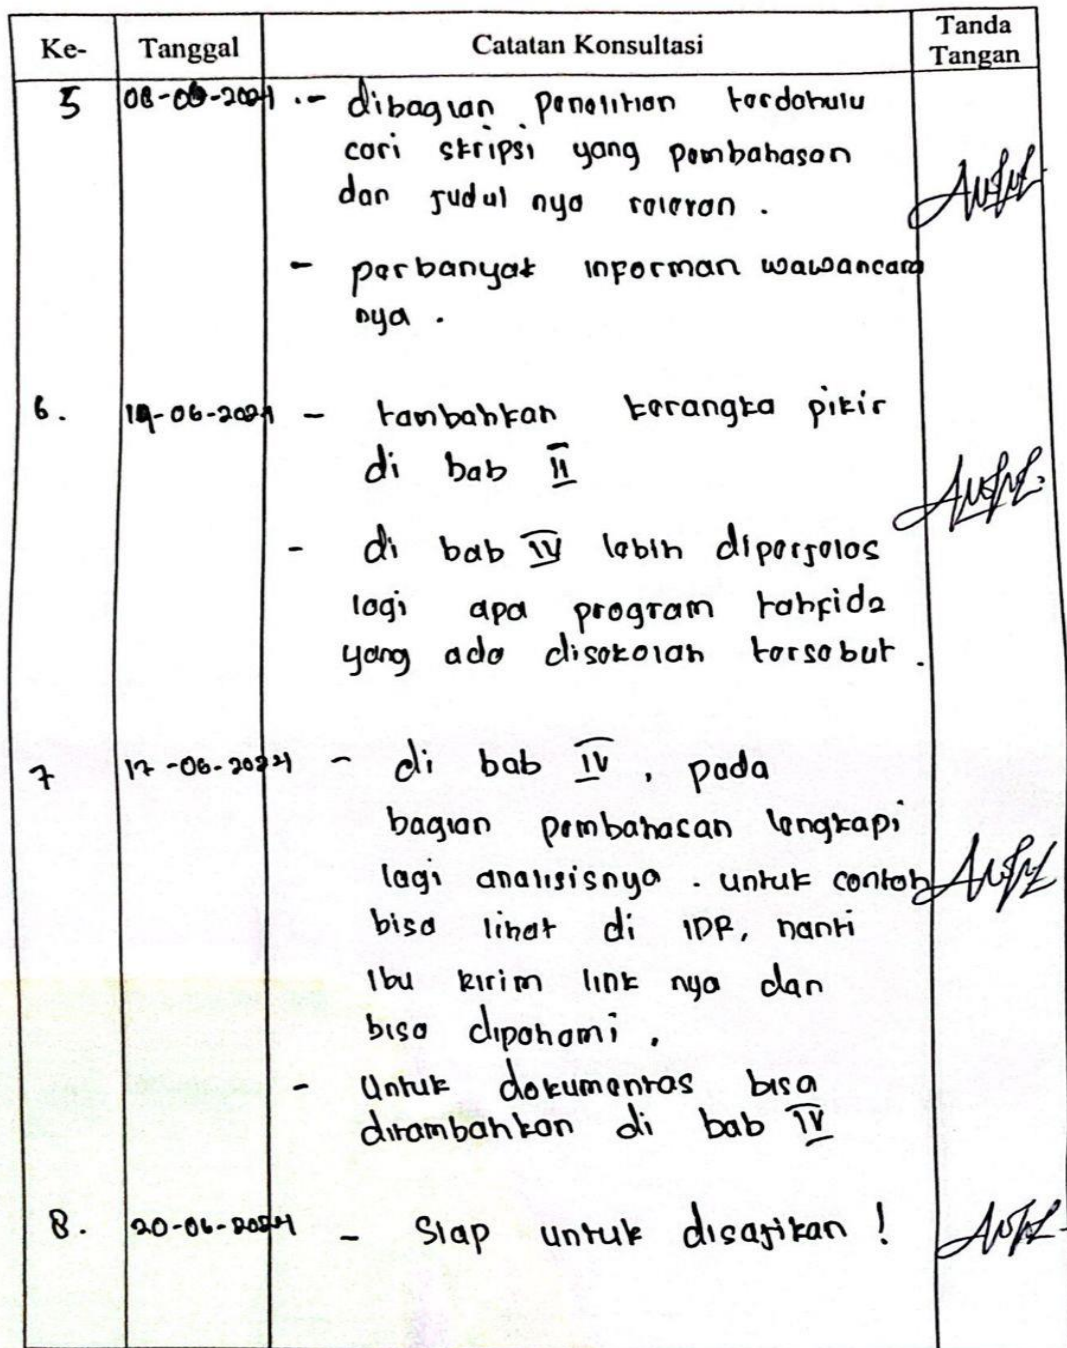 Ke- Tanggal Catatan Konsultasi Tanda Tangan
5 08-06-2024 - dibagian penelitian terdahulu
cari skripsi yang pembahasan
dan judul nya relevan .
- perbanyak informan wawancara
nya .
6. 14-06-2024 - tambahkan kerangka pikir
di bab II
- di bab IV lebih diperjelas
lagi apa program tahfidz
yang ada disekolah tersebut .
7 17-06-2024 - di bab IV , pada
bagian pembahasan lengkapi
lagi analisisnya . untuk contoh
bisa lihat di IDR, nanti
Ibu kirim link nya dan
bisa dipahami .
- Untuk dokumentas bisa
ditambahkan di bab IV
8. 20-06-2024 - Siap untuk disajikan !